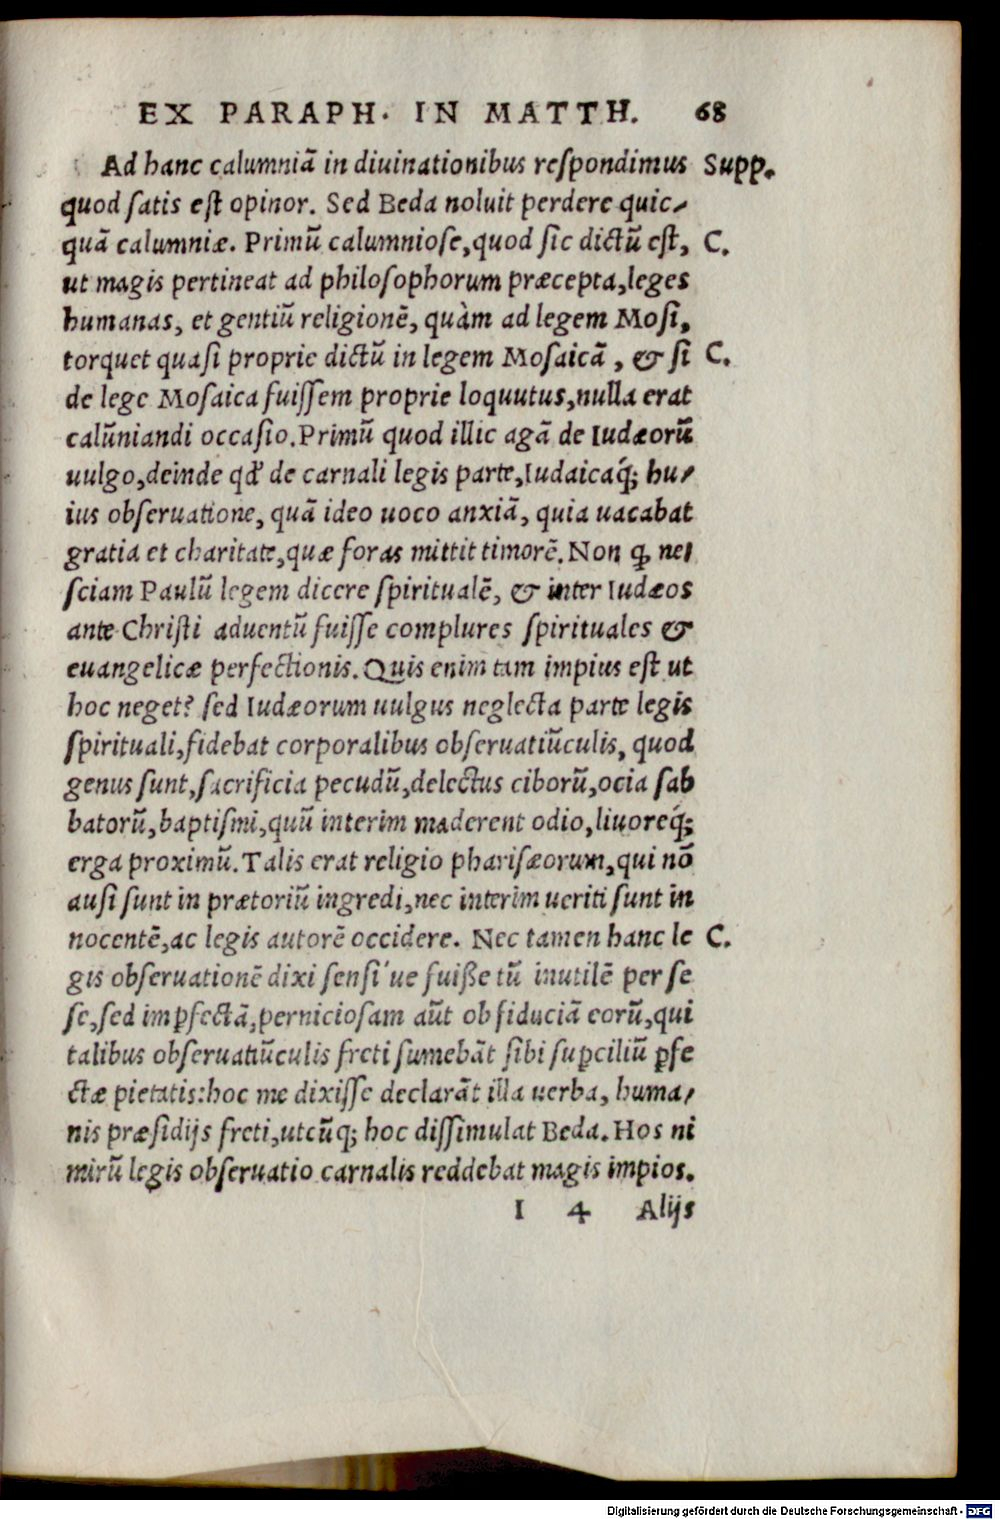 EX PARAPH. IN MATTH. 68
Ad hanc calumniã in diuinationibus respondimus Supp.
quod satis est opinor. Sed Beda noluit perdere quic-
quã calumniæ. Primũ calumniose, quod sic dictũ est, C.
ut magis pertineat ad philosophorum præcepta, leges
humanas, et gentiũ religionẽ, quàm ad legem Mosi,
torquet quasi proprie dictũ in legem Mosaicã, & si C.
de lege Mosaica fuissem proprie loquutus, nulla erat
calũniandi occasio. Primũ quod illic agã de Iudæorũ
uulgo, deinde qđ de carnali legis parte, Iudaicaq́; hu-
ius obseruatione, quã ideo uoco anxiã, quia uacabat
gratia et charitate, quæ foras mittit timorẽ. Non ꝙ ne-
sciam Paulũ legem dicere spiritualẽ, & inter Iudæos
ante Christi aduentũ fuisse complures spirituales &
euangelicæ perfectionis. Quis enim tam impius est ut
hoc neget? sed Iudæorum uulgus neglecta parte legis
spirituali, fidebat corporalibus obseruatiũculis, quod
genus sunt, sacrificia pecudũ, delectus ciborũ, ocia sab
batorũ, baptismi, quũ interim maderent odio, liuoreq́;
erga proximũ. Talis erat religio pharisæorum, qui nõ
ausi sunt in prætoriũ ingredi, nec interim ueriti sunt in
nocentẽ, ac legis autorẽ occidere. Nec tamen hanc le C.
gis obseruationẽ dixi sensi´ue fuiße tũ inutilẽ per se
se, sed imꝑfectã, perniciosam aũt ob fiduciã eorũ, qui
talibus obseruatiũculis freti sumebãt sibi suꝑciliũ ꝑfe
ctæ pietatis: hoc me dixisse declarãt illa uerba, huma-
nis præsidijs freti, utcũq; hoc dissimulat Beda. Hos ni
mirũ legis obseruatio carnalis reddebat magis impios.
I 4 Alijs
Digitalisierung gefördert durch die Deutsche Forschungsgemeinschaft - DFG